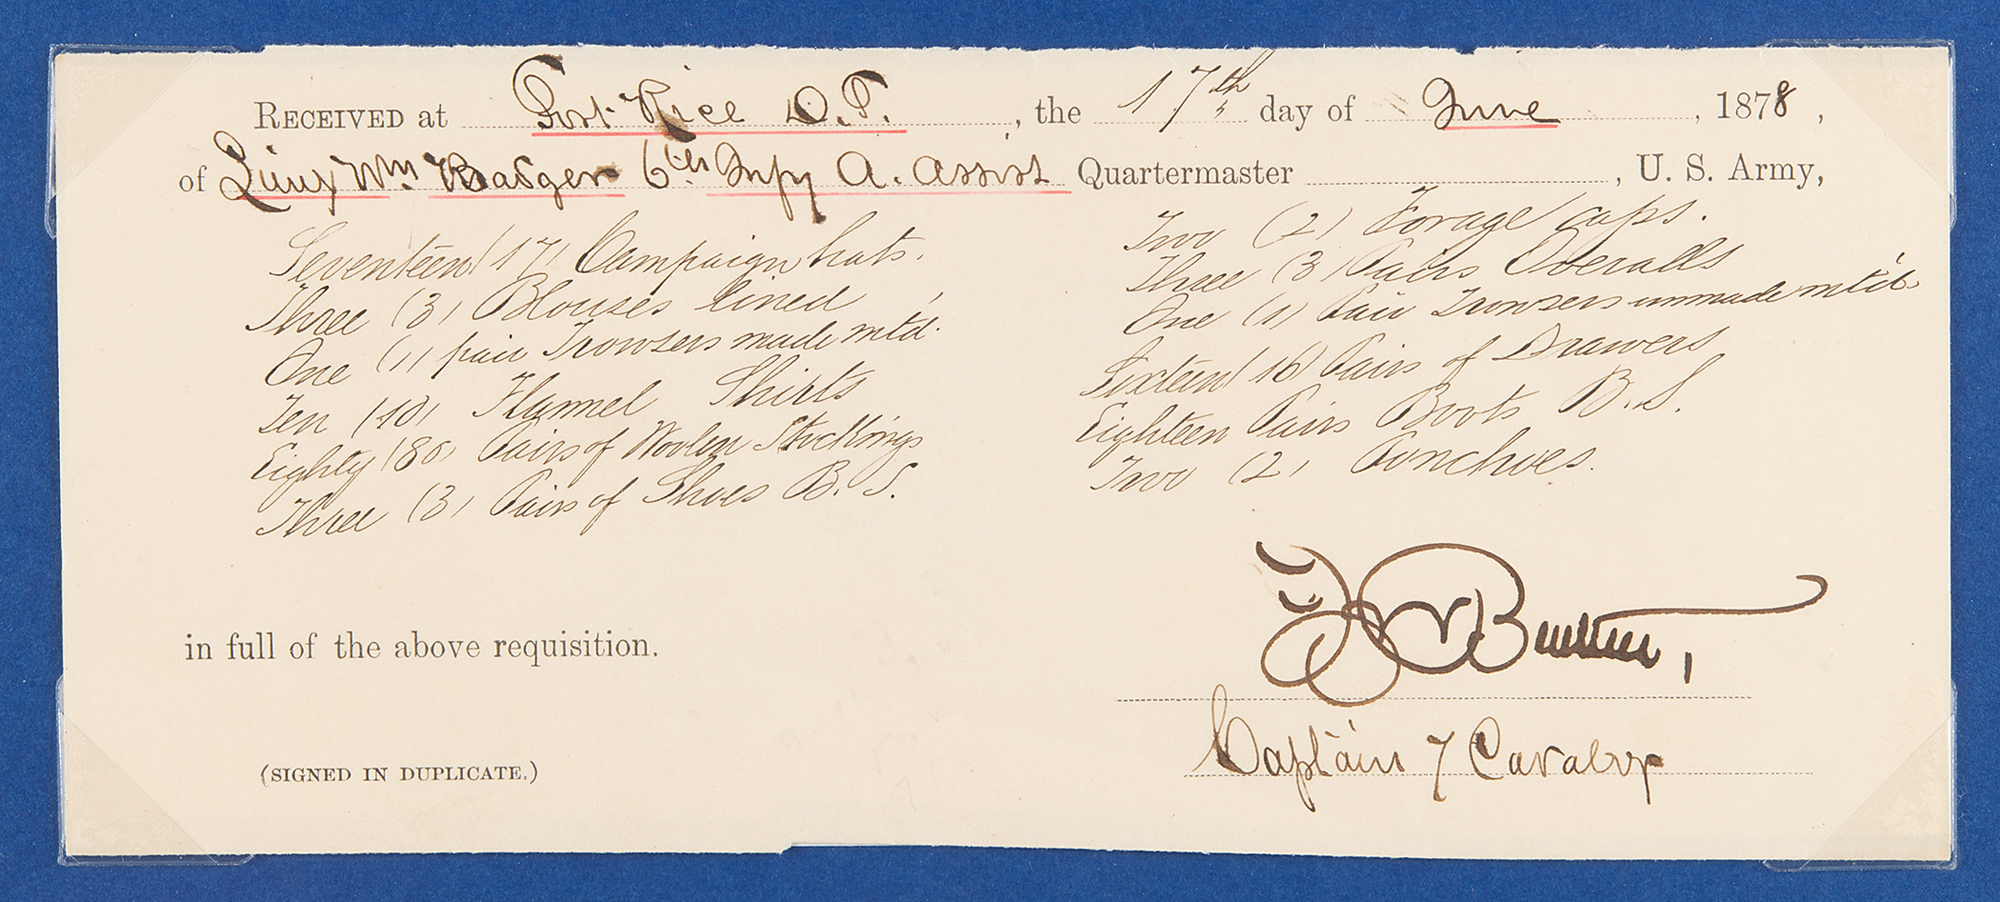 RECEIVED at Fort Rice D.T. , the 17th day of June , 1878 ,
of Lieut Wm Badger 6th Infy A. Assist Quartermaster , U. S. Army,
Seventeen (17) Campaign hats.
Three (3) Blouses lined
One (1) pair Trowsers made mtd.
Ten (10) Flannel Shirts
Eighty (80) Pairs of Woolen Stockings
Three (3) Pairs of Shoes B. S.
Two (2) Forage caps.
Three (3) Pairs Overalls
One (1) Pair Trowsers unmade mtd.
Sixteen (16) Pairs of Drawers
Eighteen Pairs Boots B. S.
Two (2) Ponchoes.
in full of the above requisition.
Captain 7 Cavalry
(SIGNED IN DUPLICATE.)